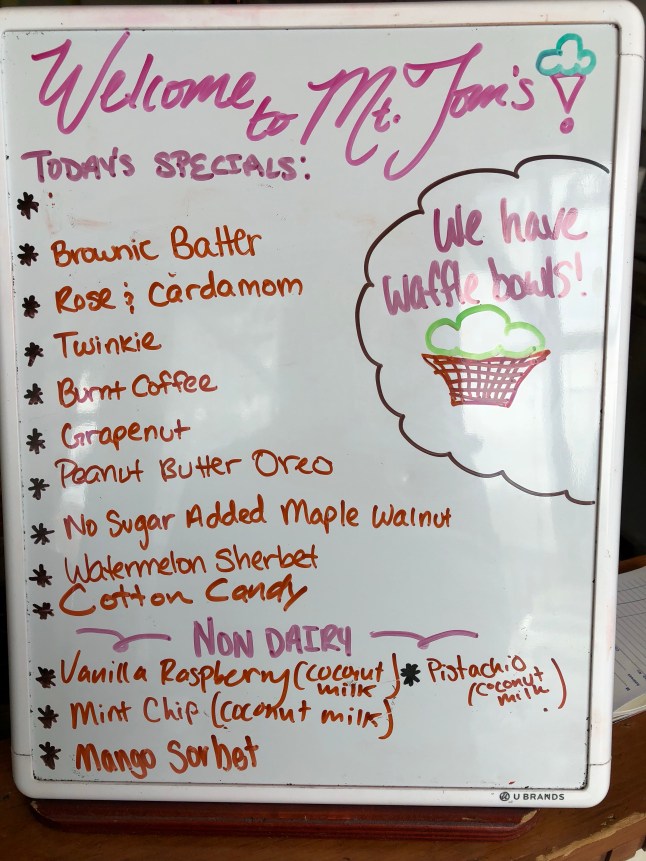 Welcome to Mt. Tom's!
TODAY'S SPECIALS:
*
* Brownie Batter
* Rose & Cardamom
* Twinkie
* Burnt Coffee
* Grapenut
* Peanut Butter Oreo
* No Sugar Added Maple Walnut
* Watermelon Sherbet
* Cotton Candy
We have
waffle bowls!
NON DAIRY
* Vanilla Raspberry (coconut milk)
* Pistachio (coconut milk)
* Mint Chip (coconut milk)
* Mango Sorbet
U BRANDS